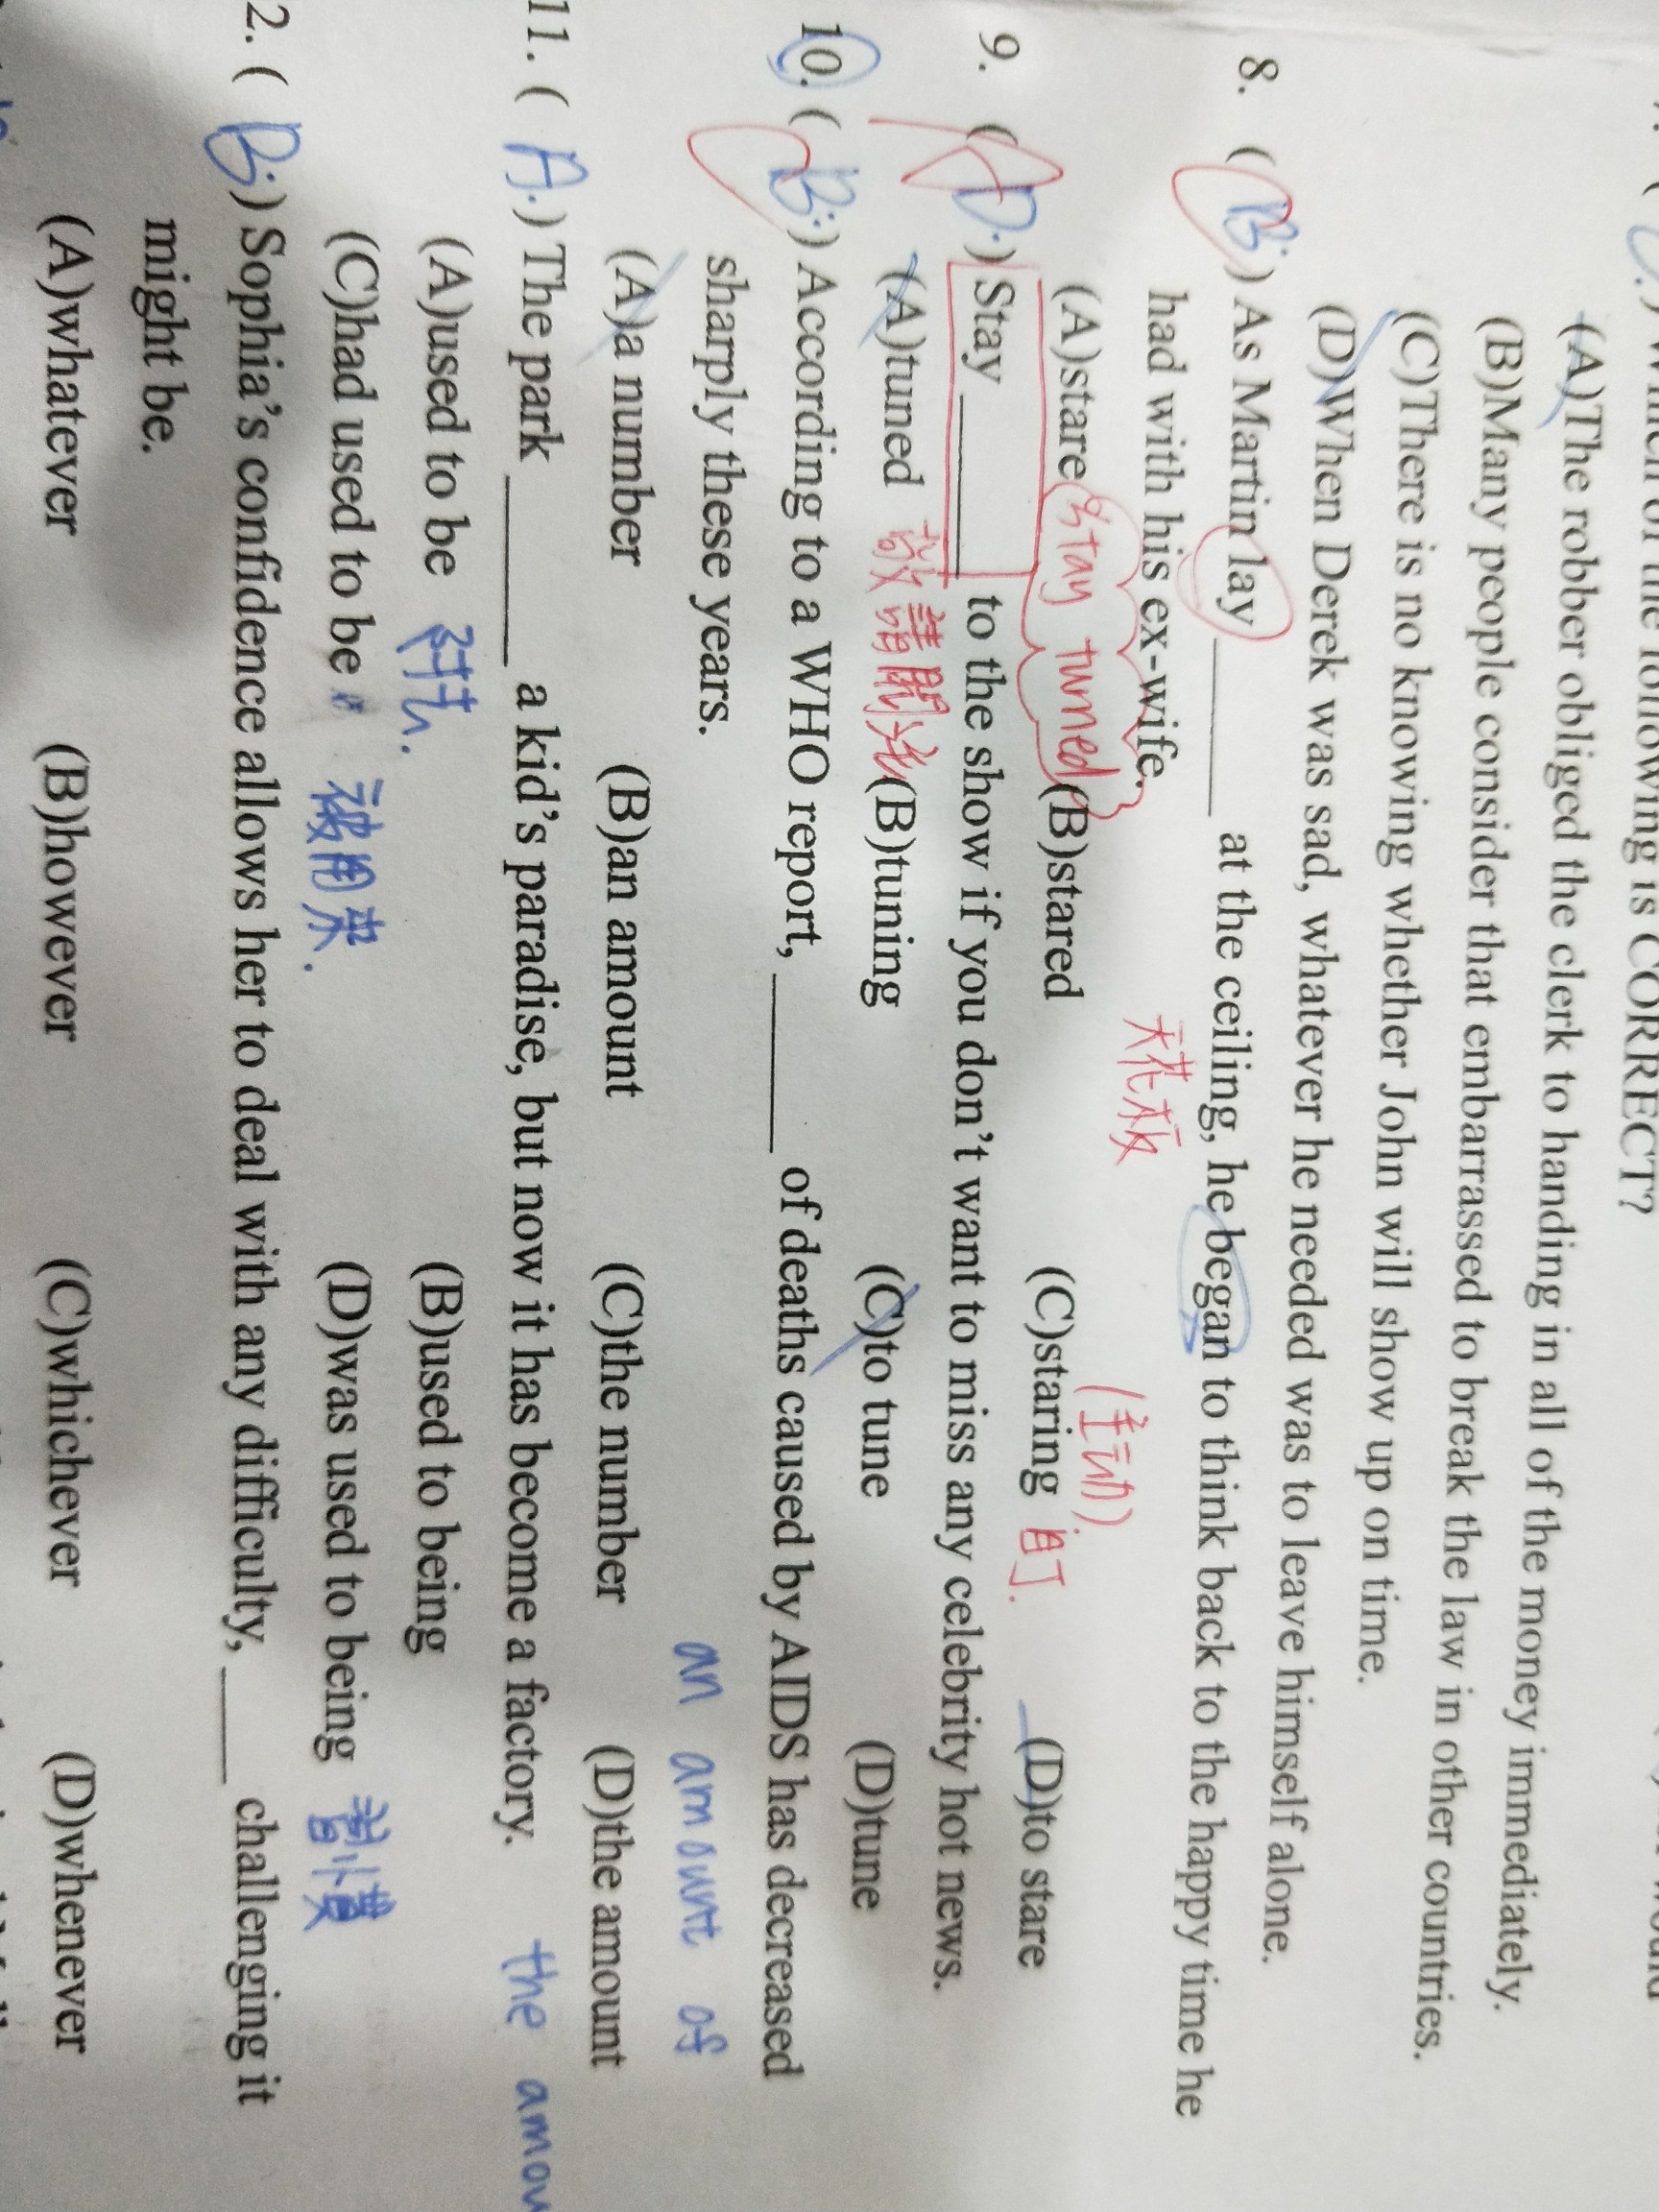 Which of the following is CORRECT?
(A)The robber obliged the clerk to handing in all of the money immediately.
(B)Many people consider that embarrassed to break the law in other countries.
(C)There is no knowing whether John will show up on time.
(D)When Derek was sad, whatever he needed was to leave himself alone.
8. ( B. ) As Martin lay ______ at the ceiling, he began to think back to the happy time he
had with his ex-wife.
天花板
(主動)
(A)stare (B)stared (C)staring (D)to stare
stay tuned
9. ( D. ) Stay ______ to the show if you don't want to miss any celebrity hot news.
(A)tuned 敬請關注 (B)tuning (C)to tune (D)tune
10. ( B. ) According to a WHO report, ______ of deaths caused by AIDS has decreased
sharply these years.
an amount of
(A)a number (B)an amount (C)the number (D)the amount
the amou
11. ( A. ) The park ______ a kid's paradise, but now it has become a factory.
(A)used to be 過去. (B)used to being
(C)had used to be 被用來. (D)was used to being 習慣
2. ( B. ) Sophia's confidence allows her to deal with any difficulty, ______ challenging it
might be.
(A)whatever (B)however (C)whichever (D)whenever